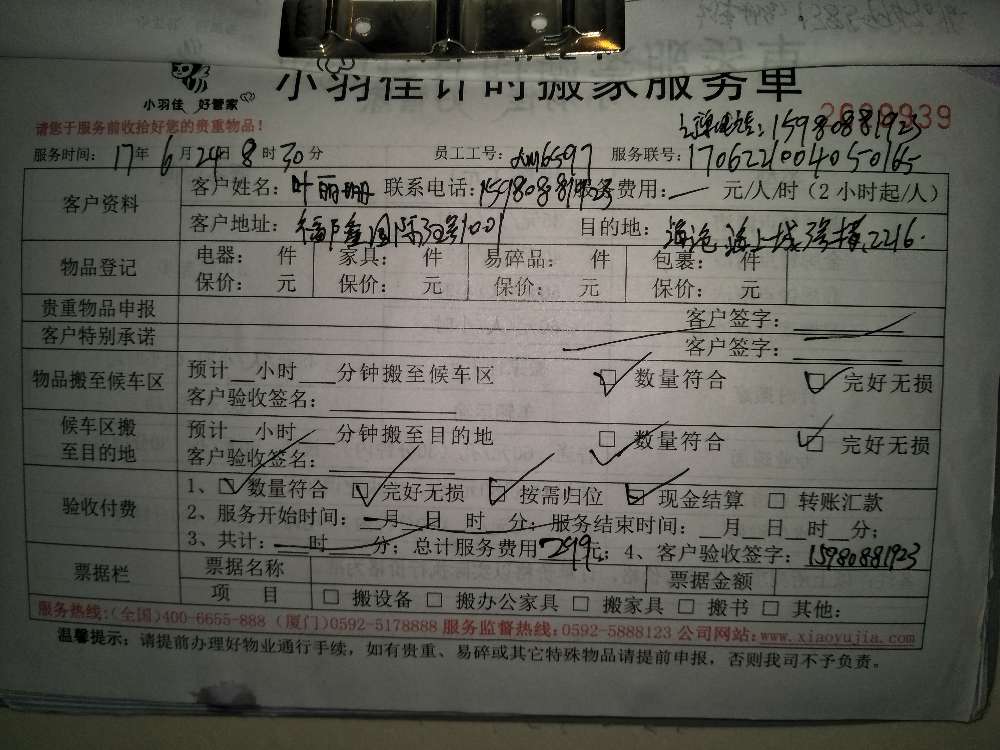 小羽佳 好管家
小羽佳计时搬家服务单
请您于服务前收拾好您的贵重物品!
15980881923
服务时间: 17年 6月 24日 8时 30分 员工工号: 服务联号: 1706221004050165
客户资料 客户姓名: 叶丽珊 联系电话: 15980881923 费用: 元/人/时 (2小时起/人)
客户地址: 国际 1001 目的地: 海沧 海上 2216.
物品登记 电器: 件 家具: 件 易碎品: 件 包裹: 件
保价: 元 保价: 元 保价: 元 保价: 元
贵重物品申报 客户签字:
客户特别承诺 客户签字:
物品搬至候车区 预计__小时___分钟搬至候车区 数量符合 完好无损
客户验收签名:
候车区搬至目的地 预计__小时___分钟搬至目的地 数量符合 完好无损
客户验收签名:
验收付费 1、 数量符合 完好无损 按需归位 现金结算 转账汇款
2、服务开始时间: 月 日 时 分; 服务结束时间: 月 日 时 分;
3、共计: 时 分; 总计服务费用 299 元; 4、客户验收签字: 15980881923
票据栏 票据名称 票据金额
项 目 搬设备 搬办公家具 搬家具 搬书 其他:
服务热线:(全国)400-6655-888 (厦门)0592-5178888 服务监督热线:0592-5888123 公司网站:www.xiaoyujia.com
温馨提示: 请提前办理好物业通行手续, 如有贵重、易碎或其它特殊物品请提前申报, 否则我司不予负责。